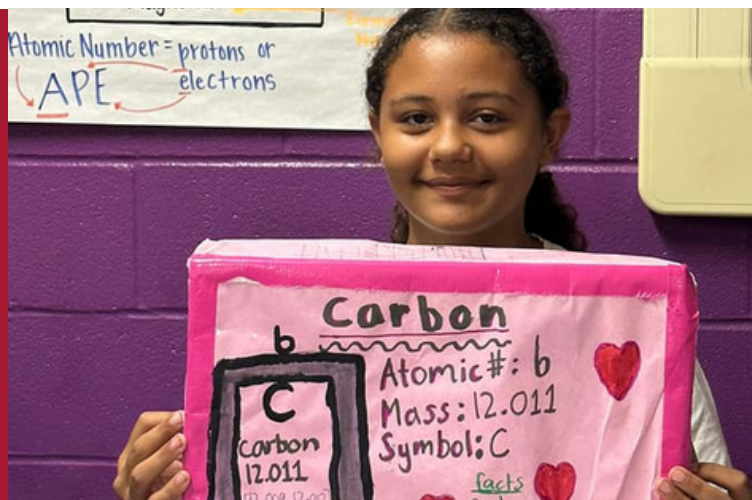 Atomic Number = protons or
APE electrons
Carbon
b
C
Carbon
12.011
Atomic#: b
Mass: 12.011
Symbol: C
facts